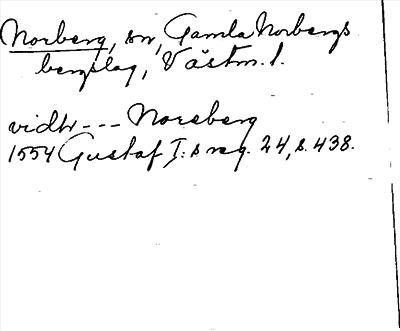 Norberg, sn, Gamla Norbergs
bergslag, Västm. l.
vidhr --- Noreberg
1554 Gustaf I:s reg. 24, s. 438.